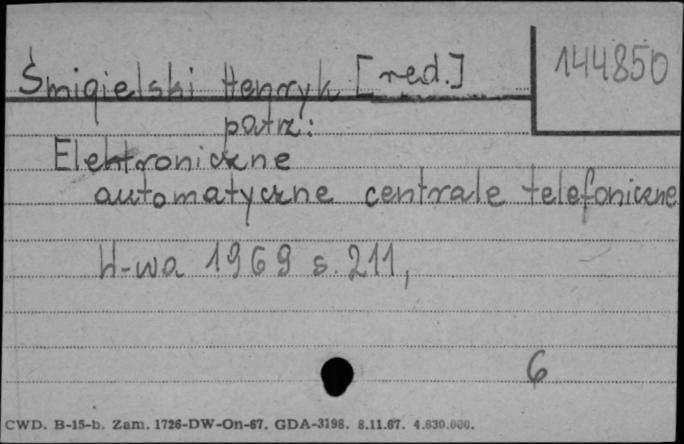 144850
Śmigielski Henryk [red.]
patrz:
Elektroniczne
automatyczne centrale telefoniczne
W-wa 1969 s. 211,
6
CWD. B-15-b. Zam. 1726-DW-On-67. GDA-3198. 8.11.67. 4.630.000.